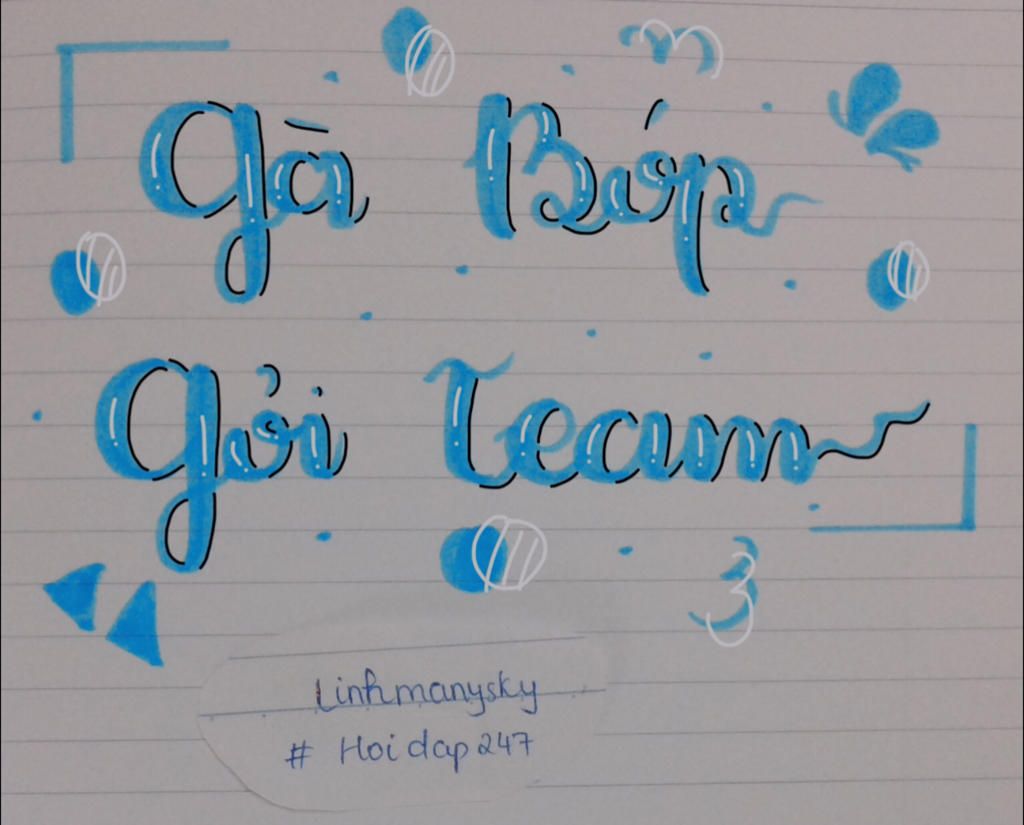 Gà Bớp
Gởi Team
Linhmanysky
# Hoidap247